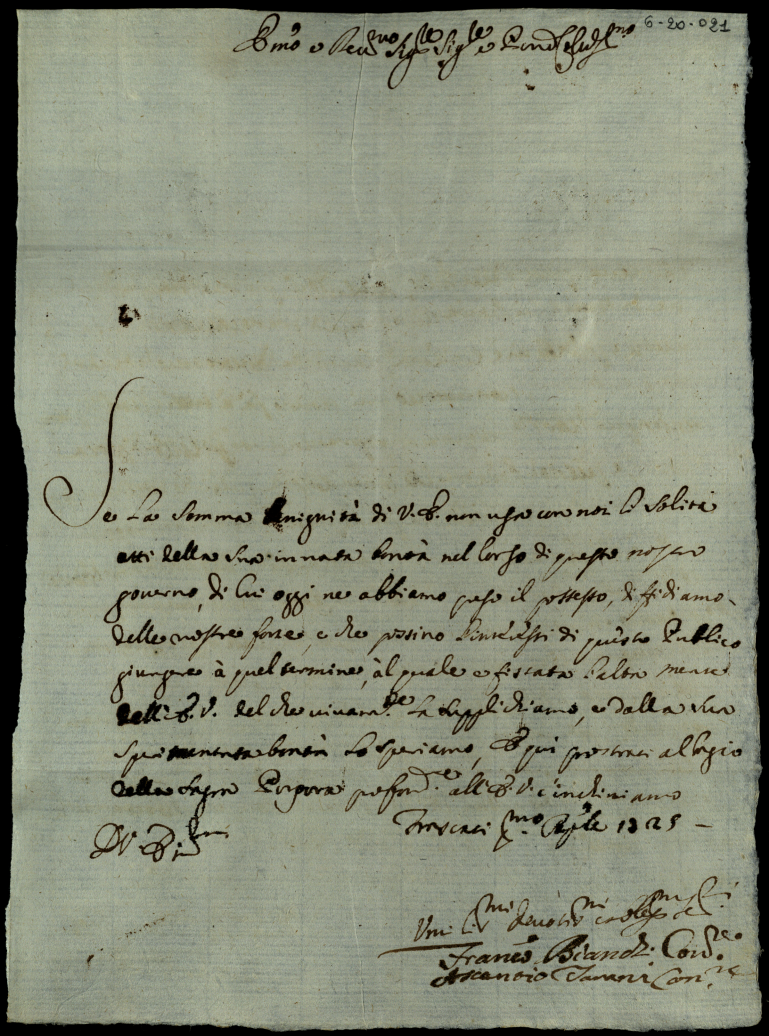 6-20-021
Em̃o e Reu.mo Sig.re Sig.re e Pron̄e
Se La Somma benignità di V. E. non usa con noi li Soliti
atti della Sua innata bontà nel Corso di questo nostro
gouerno, di Cui oggi ne abbiamo preso il possesso, diffidiamo
delle nostre forze, e che possino di questo Publico
giungere à quel termine, al quale e fissata l'alta mente
dell'E. V. del che uiuam.te La Supplichiamo, e dalla Sua
Sperimentata bontà Lo Speriamo, E qui prostrati al bagio
della Sagra Porpora profond.e all'E. V. c'inchiniamo
Frascati p.mo Aprile 1725
D V. E.
Umi.li.mi deuotis.mi
Franc.o Bianch. Con.re
Ascentio Con.re